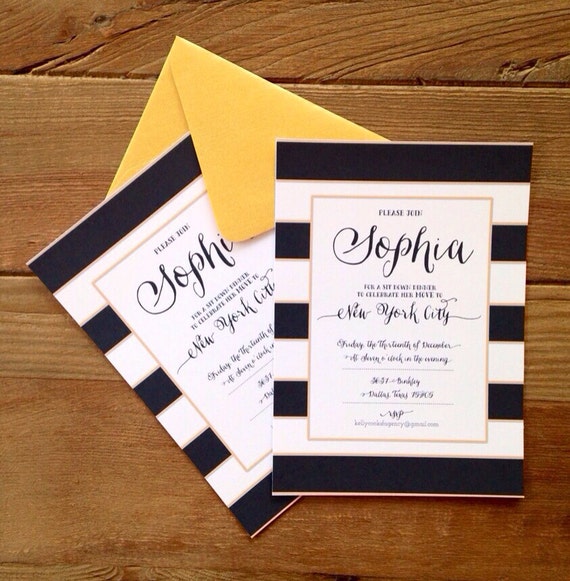 PLEASE JOIN
Sophia
FOR A SIT DOWN DINNER
TO CELEBRATE HER MOVE TO
NEW YORK CITY
Friday, the Thirteenth of December
At Seven o'clock in the evening
3637 Binkley
Dallas, Texas
RSVP
PLEASE JOIN
Sophia
FOR A SIT DOWN DINNER
TO CELEBRATE HER MOVE TO
NEW YORK CITY
Friday, the Thirteenth of December
At Seven o'clock in the evening